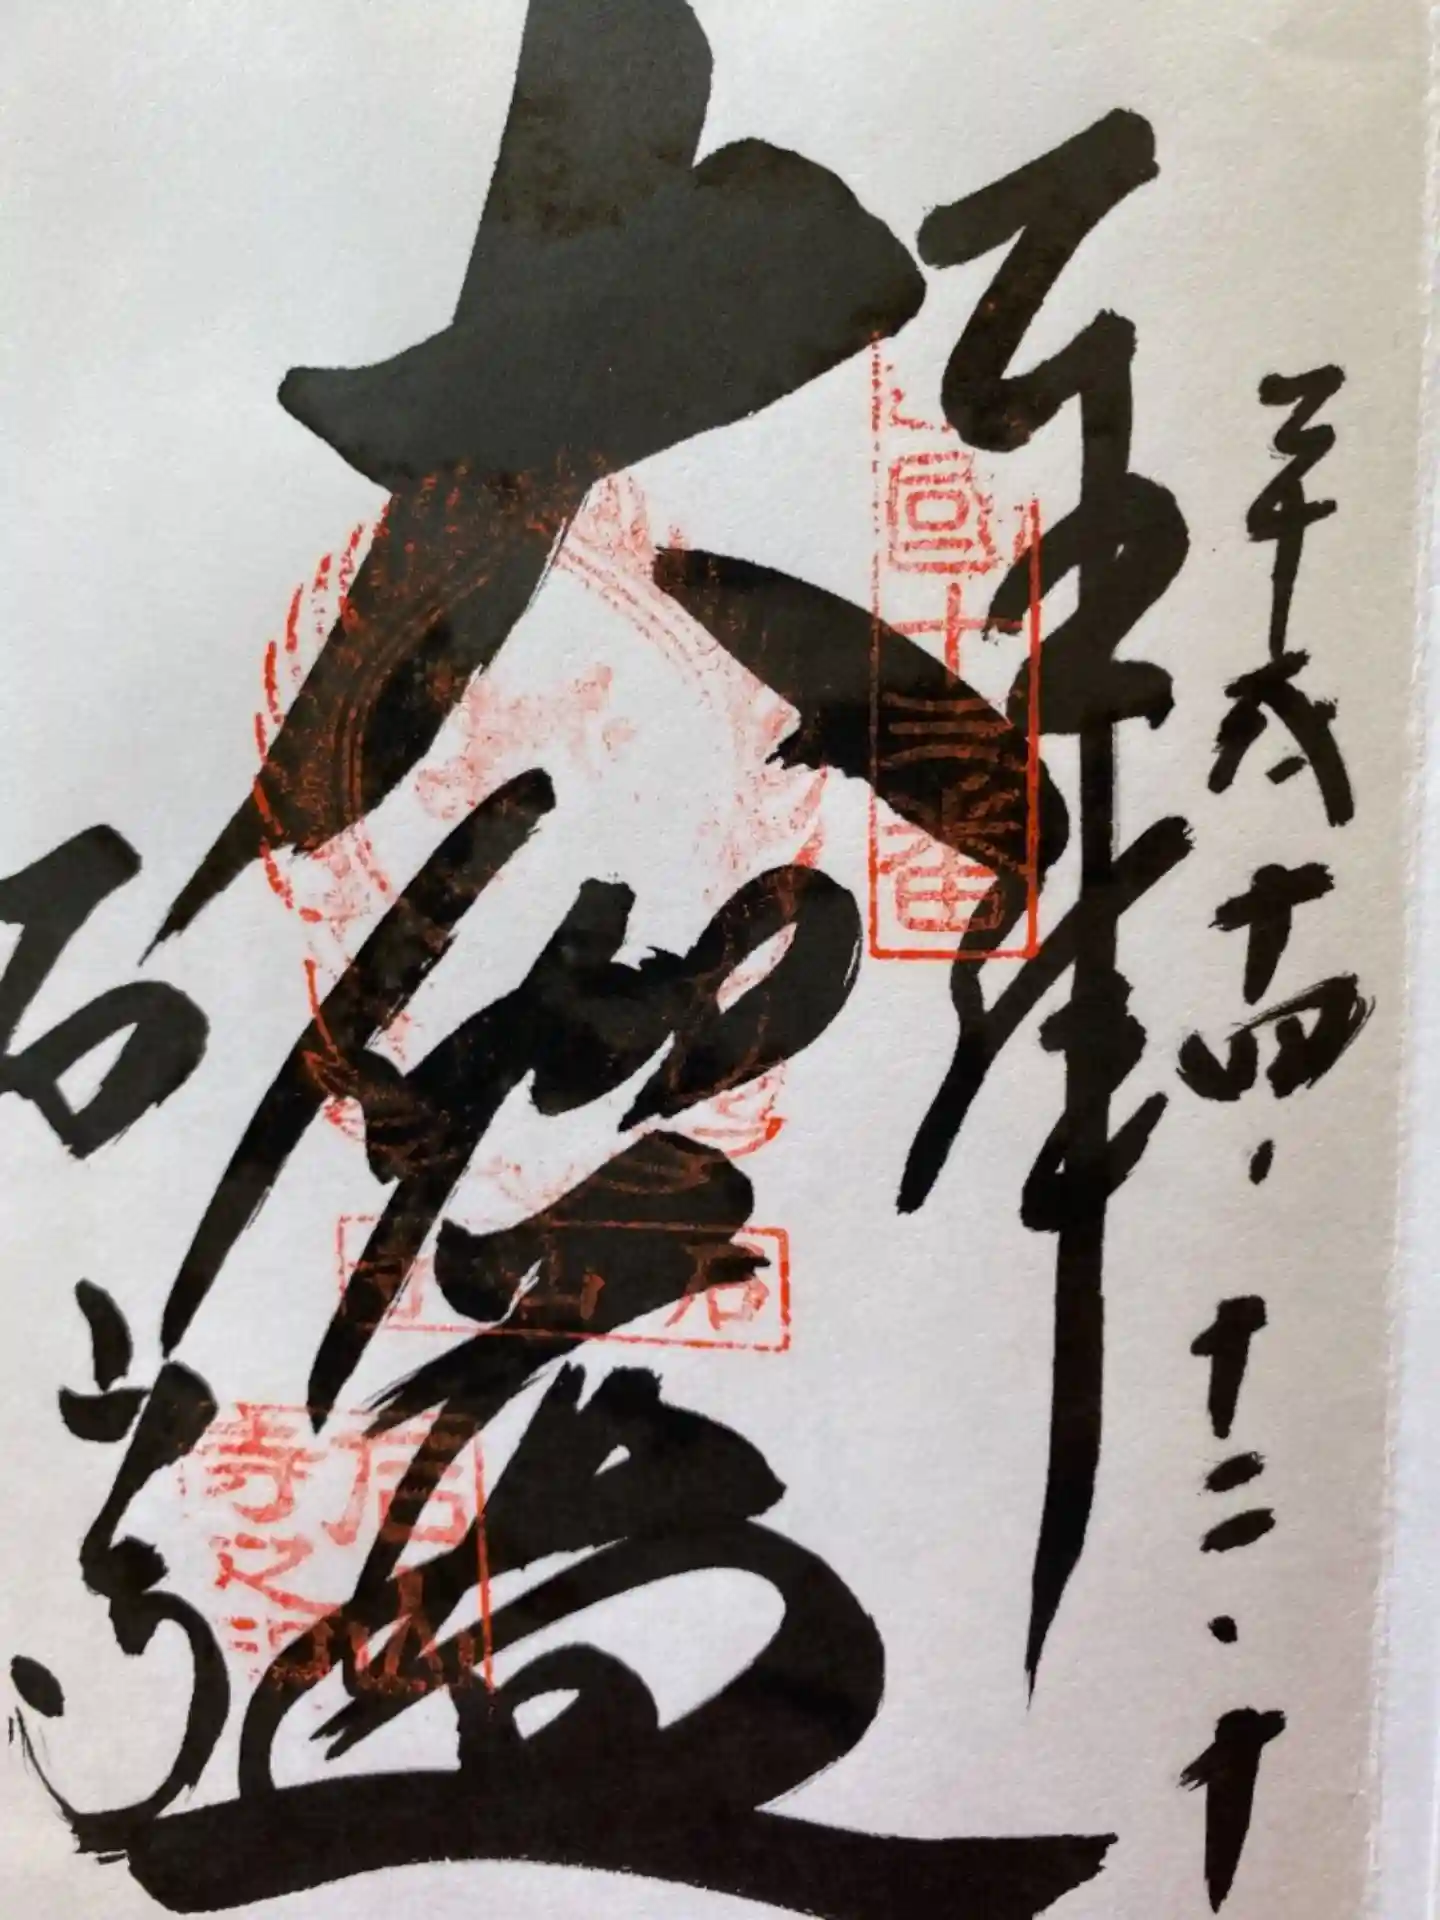 奉拝
平成十四・十二・十
西国十三番
大伽藍
石山寺
石山寺
石山寺之印